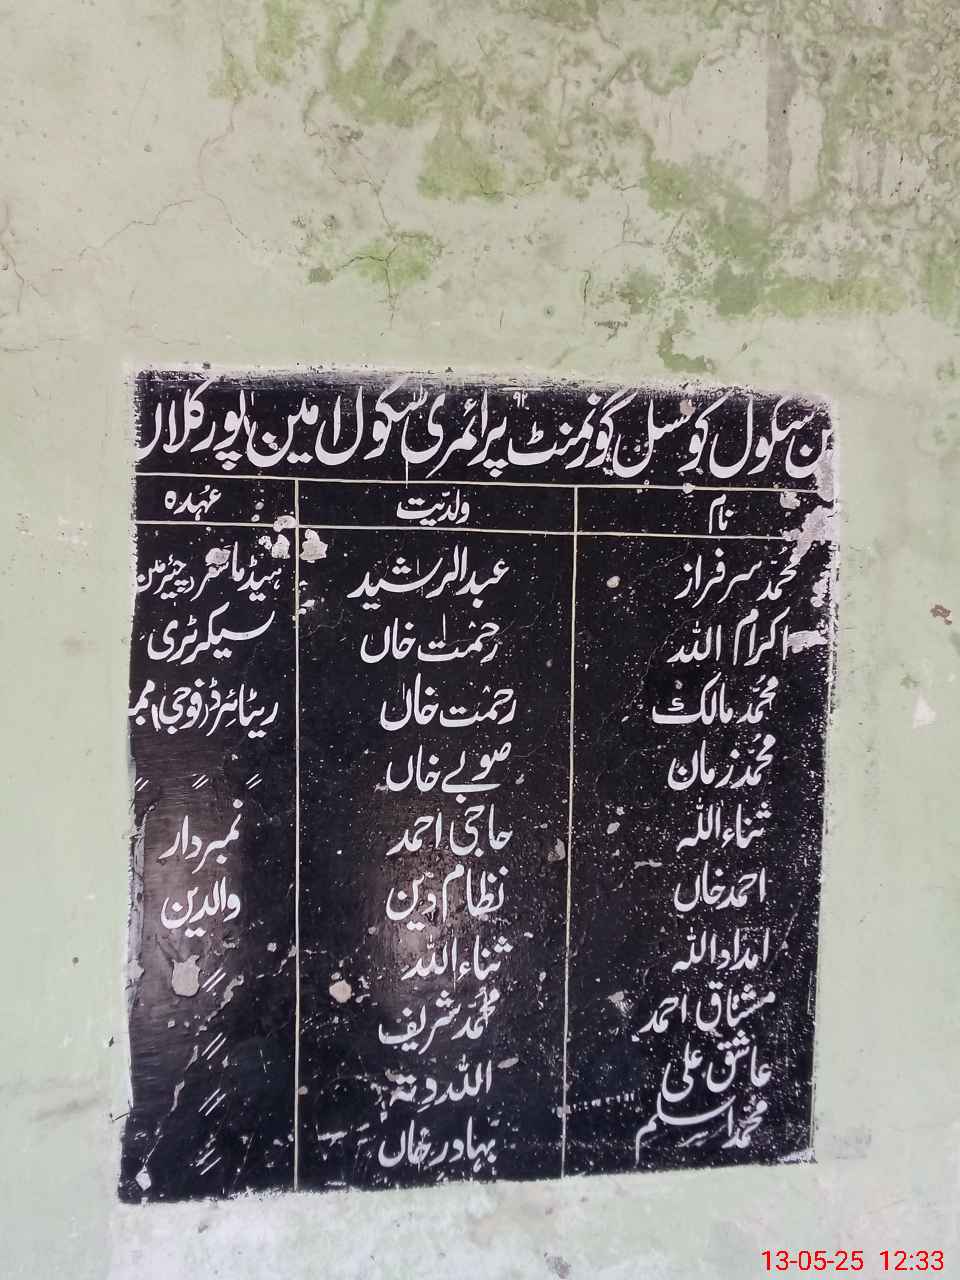 سکول کونسل گورنمنٹ پرائمری سکول امین پور کلاں
نام ولدیت عہدہ
محمد سرفراز عبدالرشید ہیڈ ماسٹر (چیئرمین
اکرام اللہ رحمت خاں سیکرٹری
محمد مالک رحمت خاں ریٹائرڈ (فوجی) ممبر
محمد زمان صوبے خاں 〃 〃 〃
ثناء اللہ حاجی احمد نمبردار
احمد خاں نظام دین والدین
امداد اللہ ثناء اللہ 〃
مشتاق احمد محمد شریف 〃
عاشق علی اللہ دتہ 〃
محمد اسلم بہادر خاں 〃
13-05-25 12:33